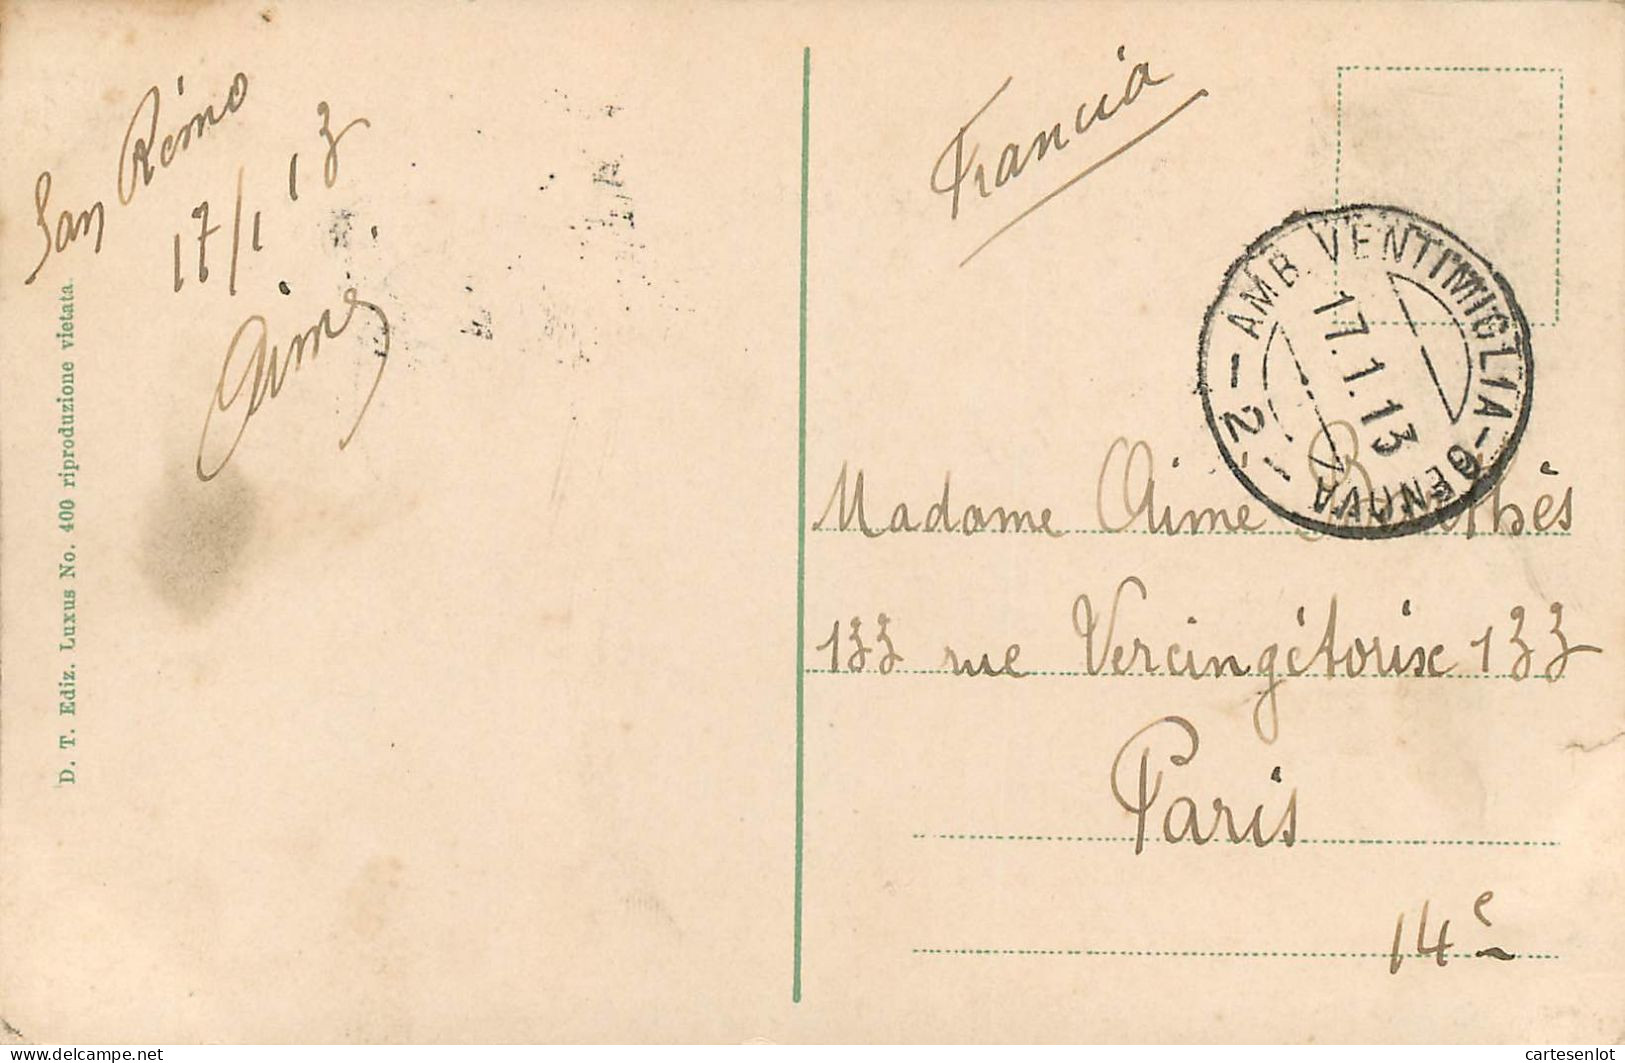 San Rémo
17/1 13
Aimé
D. T. Ediz. Luxus No. 400 riproduzione vietata
Francia
AMB. VENTIMIGLIA - GENOVA
17.1.13
- 2 -
Madame Aime
133 rue Vercingétorix 133
Paris
14e
cartesenlot